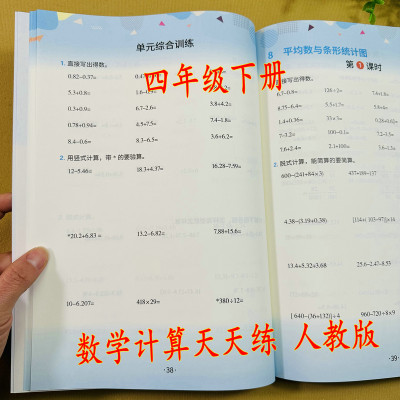 单元综合训练
1. 直接写出得数。
0.82-0.37=
5.3+0.8=
0.3+0.9=
6.7-2.6=
3.8+4.2=
0.78+0.94=
4.5+8.5=
7.4-1.8=
8.4-0.6=
8.3-6.5=
3.6+6.2=
2. 用竖式计算，带*的要验算。
12-5.46=
18.3+4.37=
16.28-7.59=
*20.2+6.83=
13.2-6.82=
7.88+15.6=
10-6.207=
418×29=
*380÷12=
·38·
8 平均数与条形统计图
第1课时
直接写出得数。
6.3-0.8=
7.4+1.8=
6.75-6.4=
5.5+1.7=
1.4+0.36=
7-3.2=
100-0.1=
7.2-3.5=
7.6+2.4=
2.1+100=
3.6-1.5=
2. 脱式计算，能简算的要简算。
600-(241+84×3)
437+189-137
4.38-(3.19+0.38)
13.4+5.32+3.68
25.6-2.47-8.53
[640-(36+132)]÷4
960-720÷8×9
·39·
四年级下册
数学计算天天练 人教版